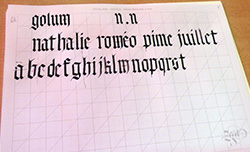 golum n.n
nathalie roméo pime juillet
abcdefghijklmnopqrst